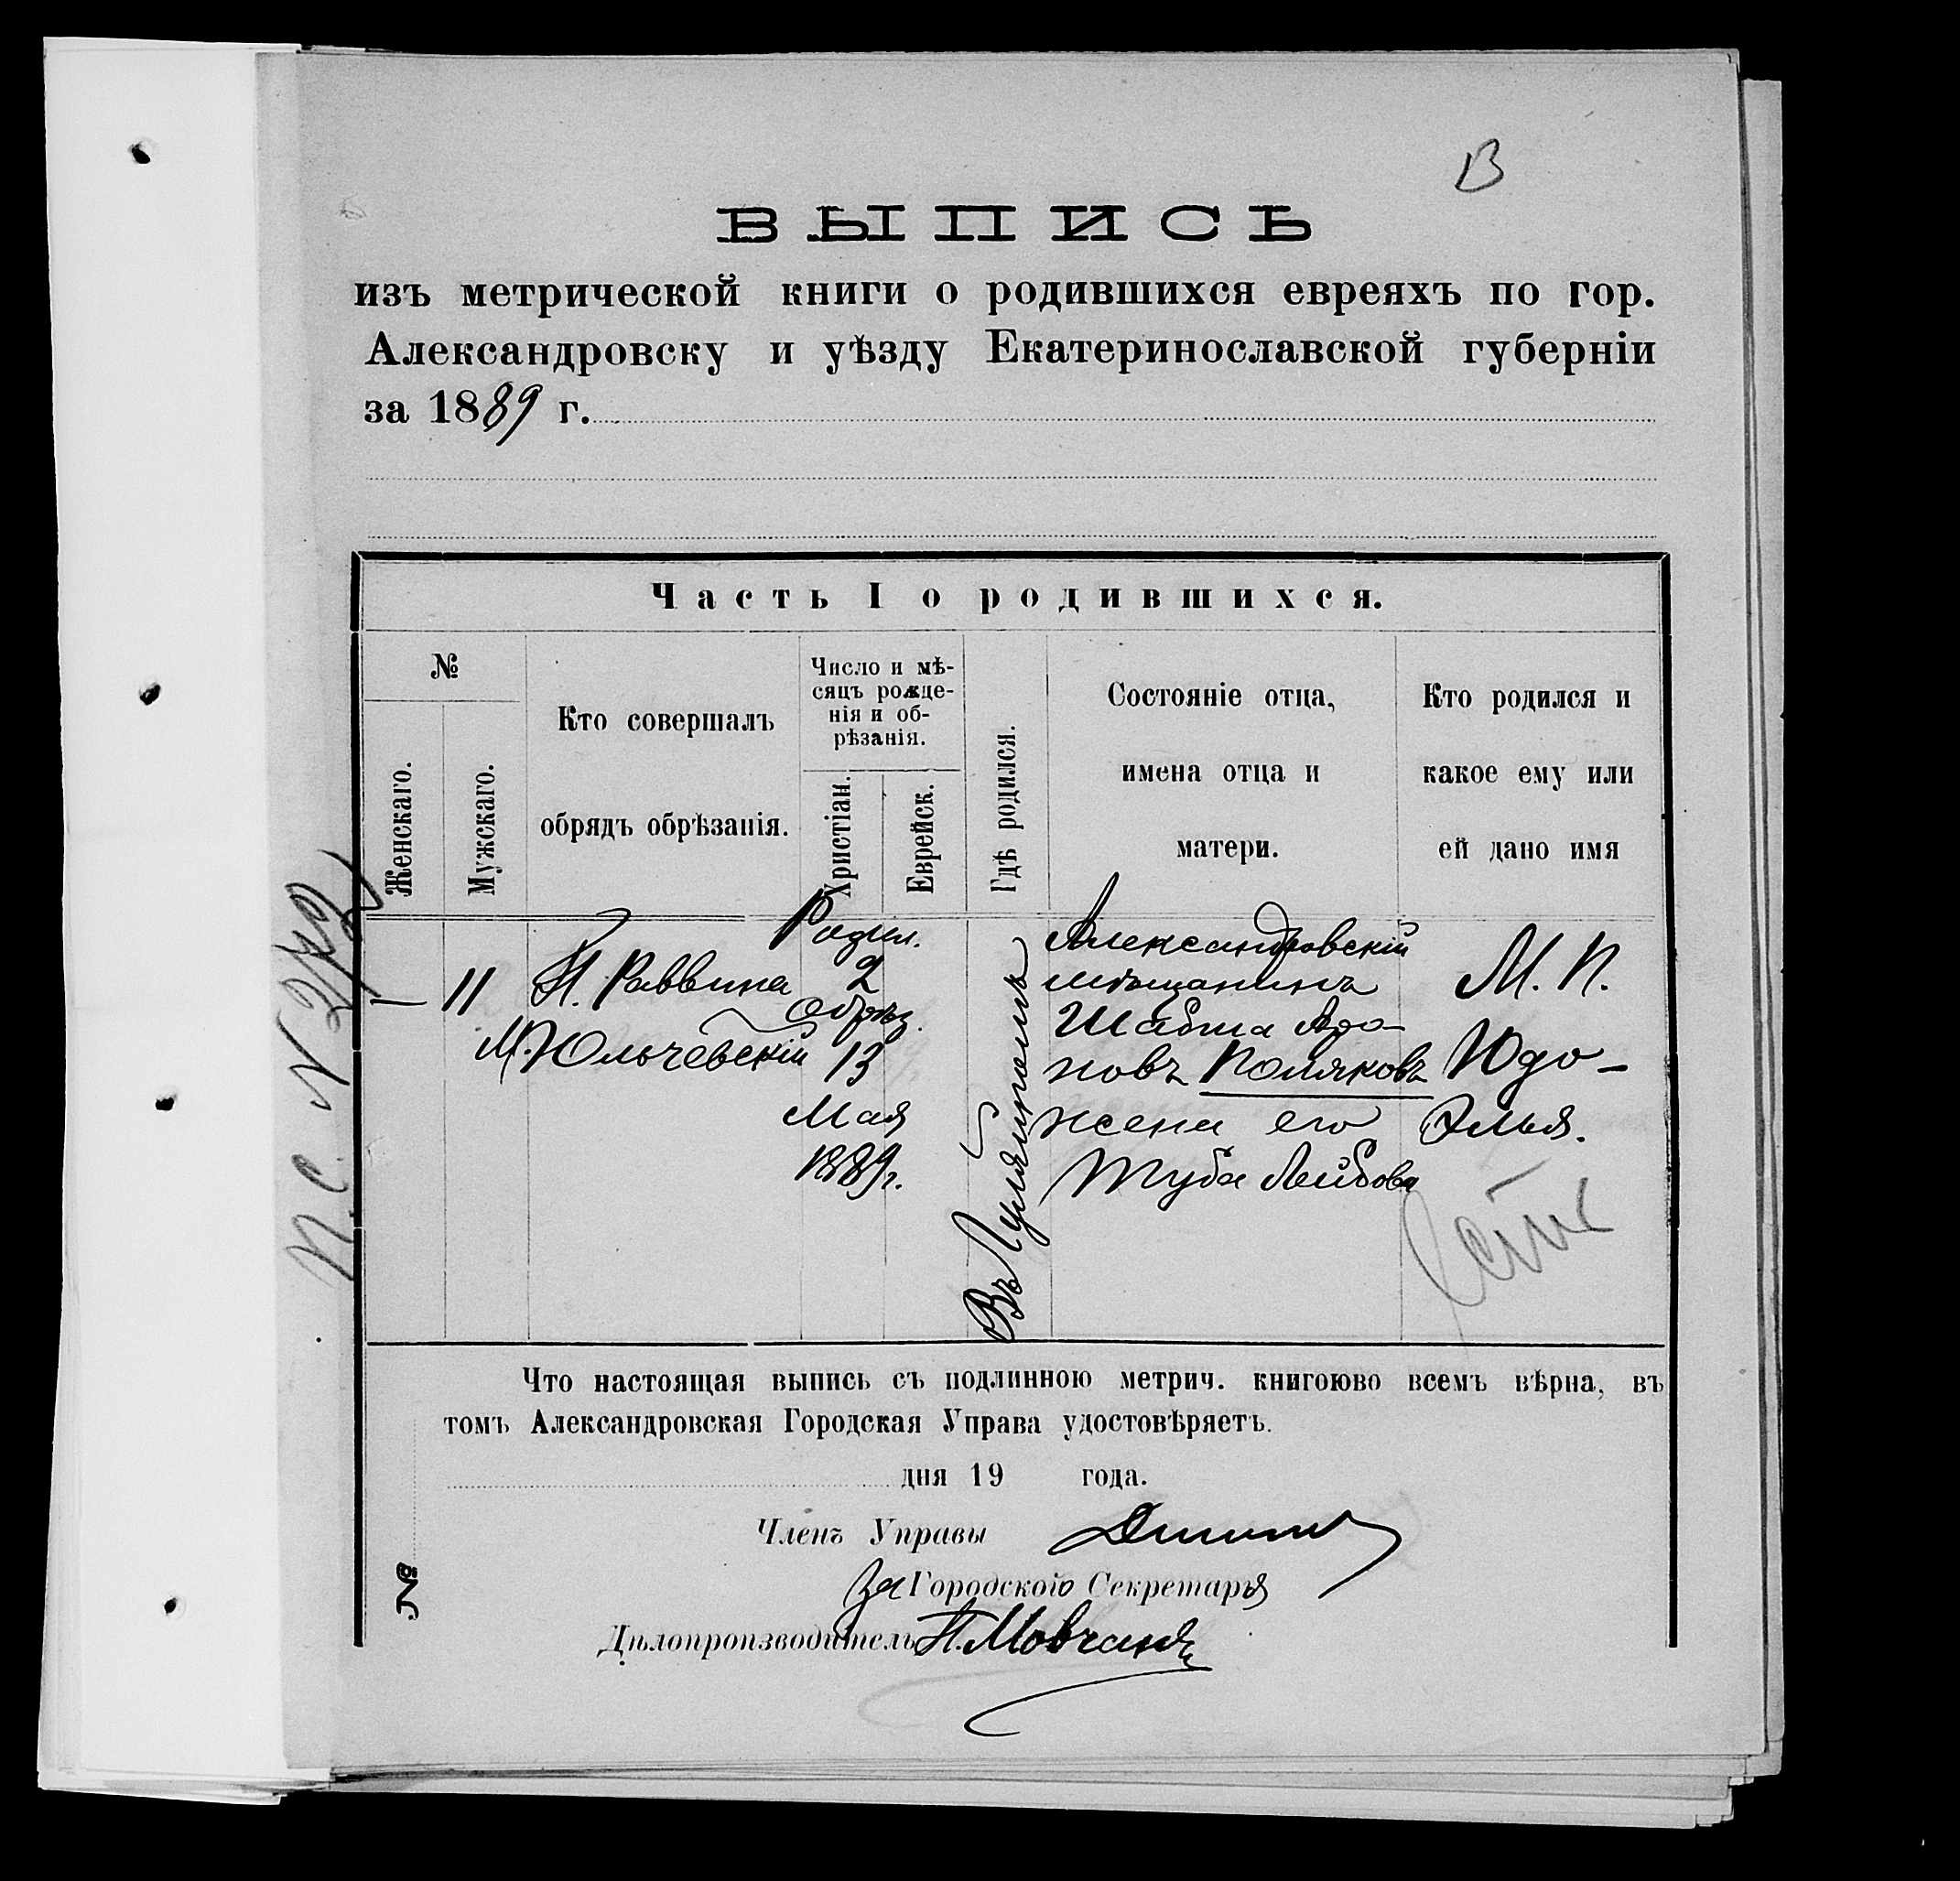 В
ВЫПИСЬ
изъ метрической книги о родившихся евреяхъ по гор.
Александровску и уѣзду Екатеринославской губерніи
за 1889 г.
Часть I о родившихся.
№
Женскаго.
Мужскаго.
Кто совершалъ
обрядъ обрѣзанія.
Число и мѣ-
сяцъ рожде-
нія и об-
рѣзанія.
Христіан.
Еврейск.
Гдѣ родился.
Состояніе отца,
имена отца и
матери.
Кто родился и
какое ему или
ей дано имя
—
11
П. Раввина
М. Юльчевскій
Родил.
2
Обрѣз.
13
Мая
1889 г.
Въ Гуляйполѣ
Александровскій
мѣщанинъ
Шабша Аро-
новъ Поляковъ
жена его
Туба Лейбова
М. П.
Юдо-
Элья.
П. С. N
Что настоящая выпись съ подлинною метрич. книгоюво всемъ вѣрна, въ
томъ Александровская Городская Управа удостовѣряетъ.
дня 19 года.
Членъ Управы
За Городского Секретаря
Дѣлопроизводитель П. Мовчанъ
№